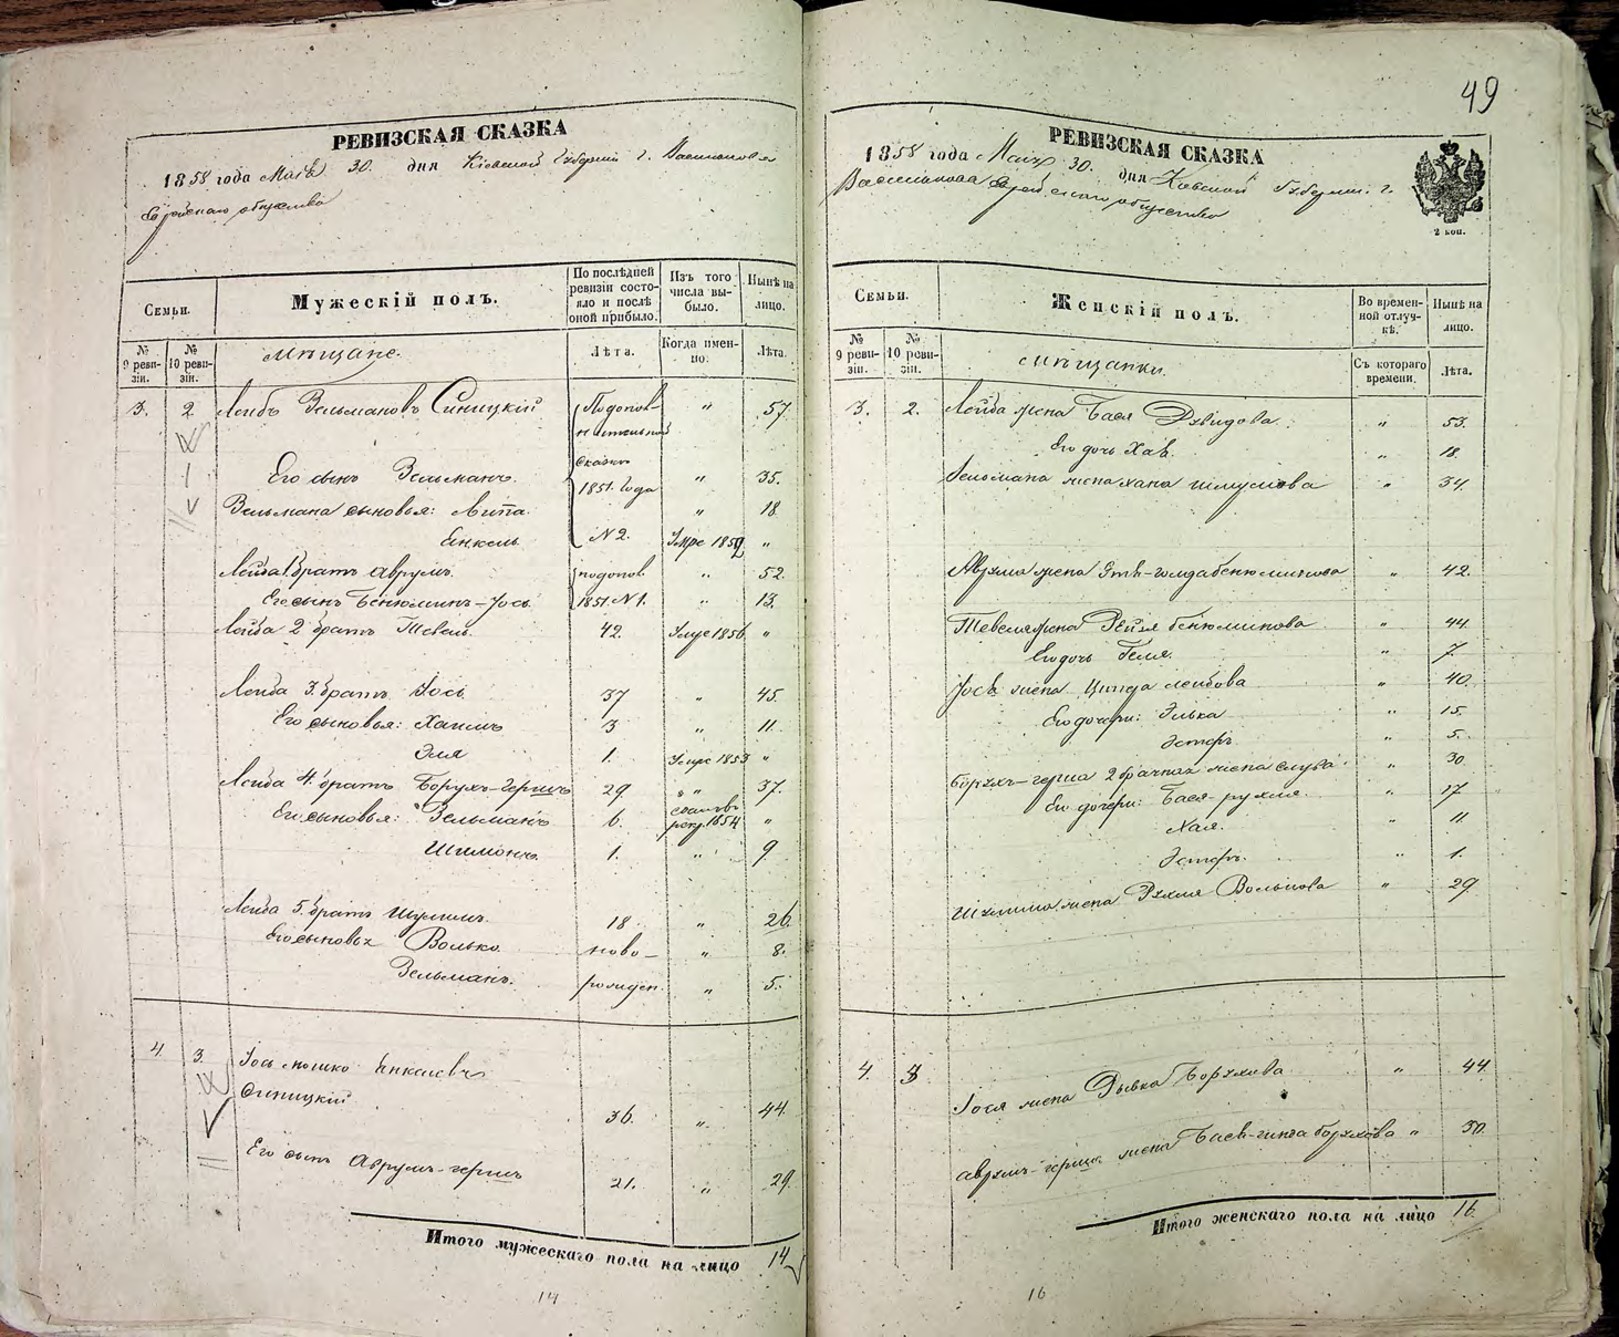 49
РЕВИЗСКАЯ СКАЗКА
1858 года Маія 30. дня Кіевской Губерніи г. Василькова
Еврейскаго общества
Семьи.
Мужескій полъ.
По послѣдней ревизіи состояло и послѣ оной прибыло.
Изъ того числа выбыло.
Нынѣ на лицо.
№ 9 ревизіи.
№ 10 ревизіи.
Мѣщане.
Лѣта.
Когда именно.
Лѣта.
3. 2. Лейбъ Зельмановъ Синицкій Подополнительной " 57.
сказки
Его сынъ Зельманъ. 1851. года " 35.
Зельмана сыновья: Липа. " 18
Янкель № 2. Умре 1852 "
Лейба 1. братъ Аврумъ. подопол. " 52.
Его сынъ Бенюминъ-Іось. 1851. № 1. " 13.
Лейба 2 братъ Тевель. 42. Умре 1856 "
Лейба 3. братъ Іось 37 " 45.
Его сыновья: Хаимъ 3 " 11.
Эля 1. Умре 1853 "
Лейба 4. братъ Борухъ-Гершъ 29 " " 37.
Его сыновья: Зельманъ 6. рекр. 1854 "
Шимонъ. 1. " 9.
Лейба 5. братъ Шулимъ. 18 " 26.
Его сыновья Волько. ново- " 8.
Зельманъ. рожден. " 5.
4 3. Іось Мошко Янкелевъ
Синицкій 36. " 44.
Его сынъ Аврумъ-Гершъ 21. " 29.
Итого мужескаго пола на лицо 14
14
РЕВИЗСКАЯ СКАЗКА
1858 года Маія 30. дня Кіевской Губерніи. г.
Василькова Еврейскаго общества
2 коп.
Семьи.
Женскій полъ.
Во временной отлучкѣ.
Нынѣ на лицо.
№ 9 ревизіи.
№ 10 ревизіи.
Мѣщанки.
Съ котораго времени.
Лѣта.
3. 2. Лейба жена Бася Дувидова " 53.
Его дочь Хая. " 18.
Зельмана жена Хана Шмулева " 34.
Аврума жена Этя-Голда Бенюминова " 42.
Тевеля жена Рейзя Бенюминова " 44.
Его дочь Геля. " 7.
Іося жена Ципра Лейбова " 40.
Его дочери: Элька " 15.
Эстеръ " 5.
Борухъ-Герша 2 брачная жена Слува. " 30
Его дочери: Бася-Рухля. " 17
Хая. " 11.
Эстеръ. " 1.
Шулима жена Рухля Волькова " 29.
4. 3 Іося жена Рывка Борухова " 44.
Аврумъ-Герша жена Бася-Гинда Борухова " 30.
Итого женскаго пола на лицо 16.
16